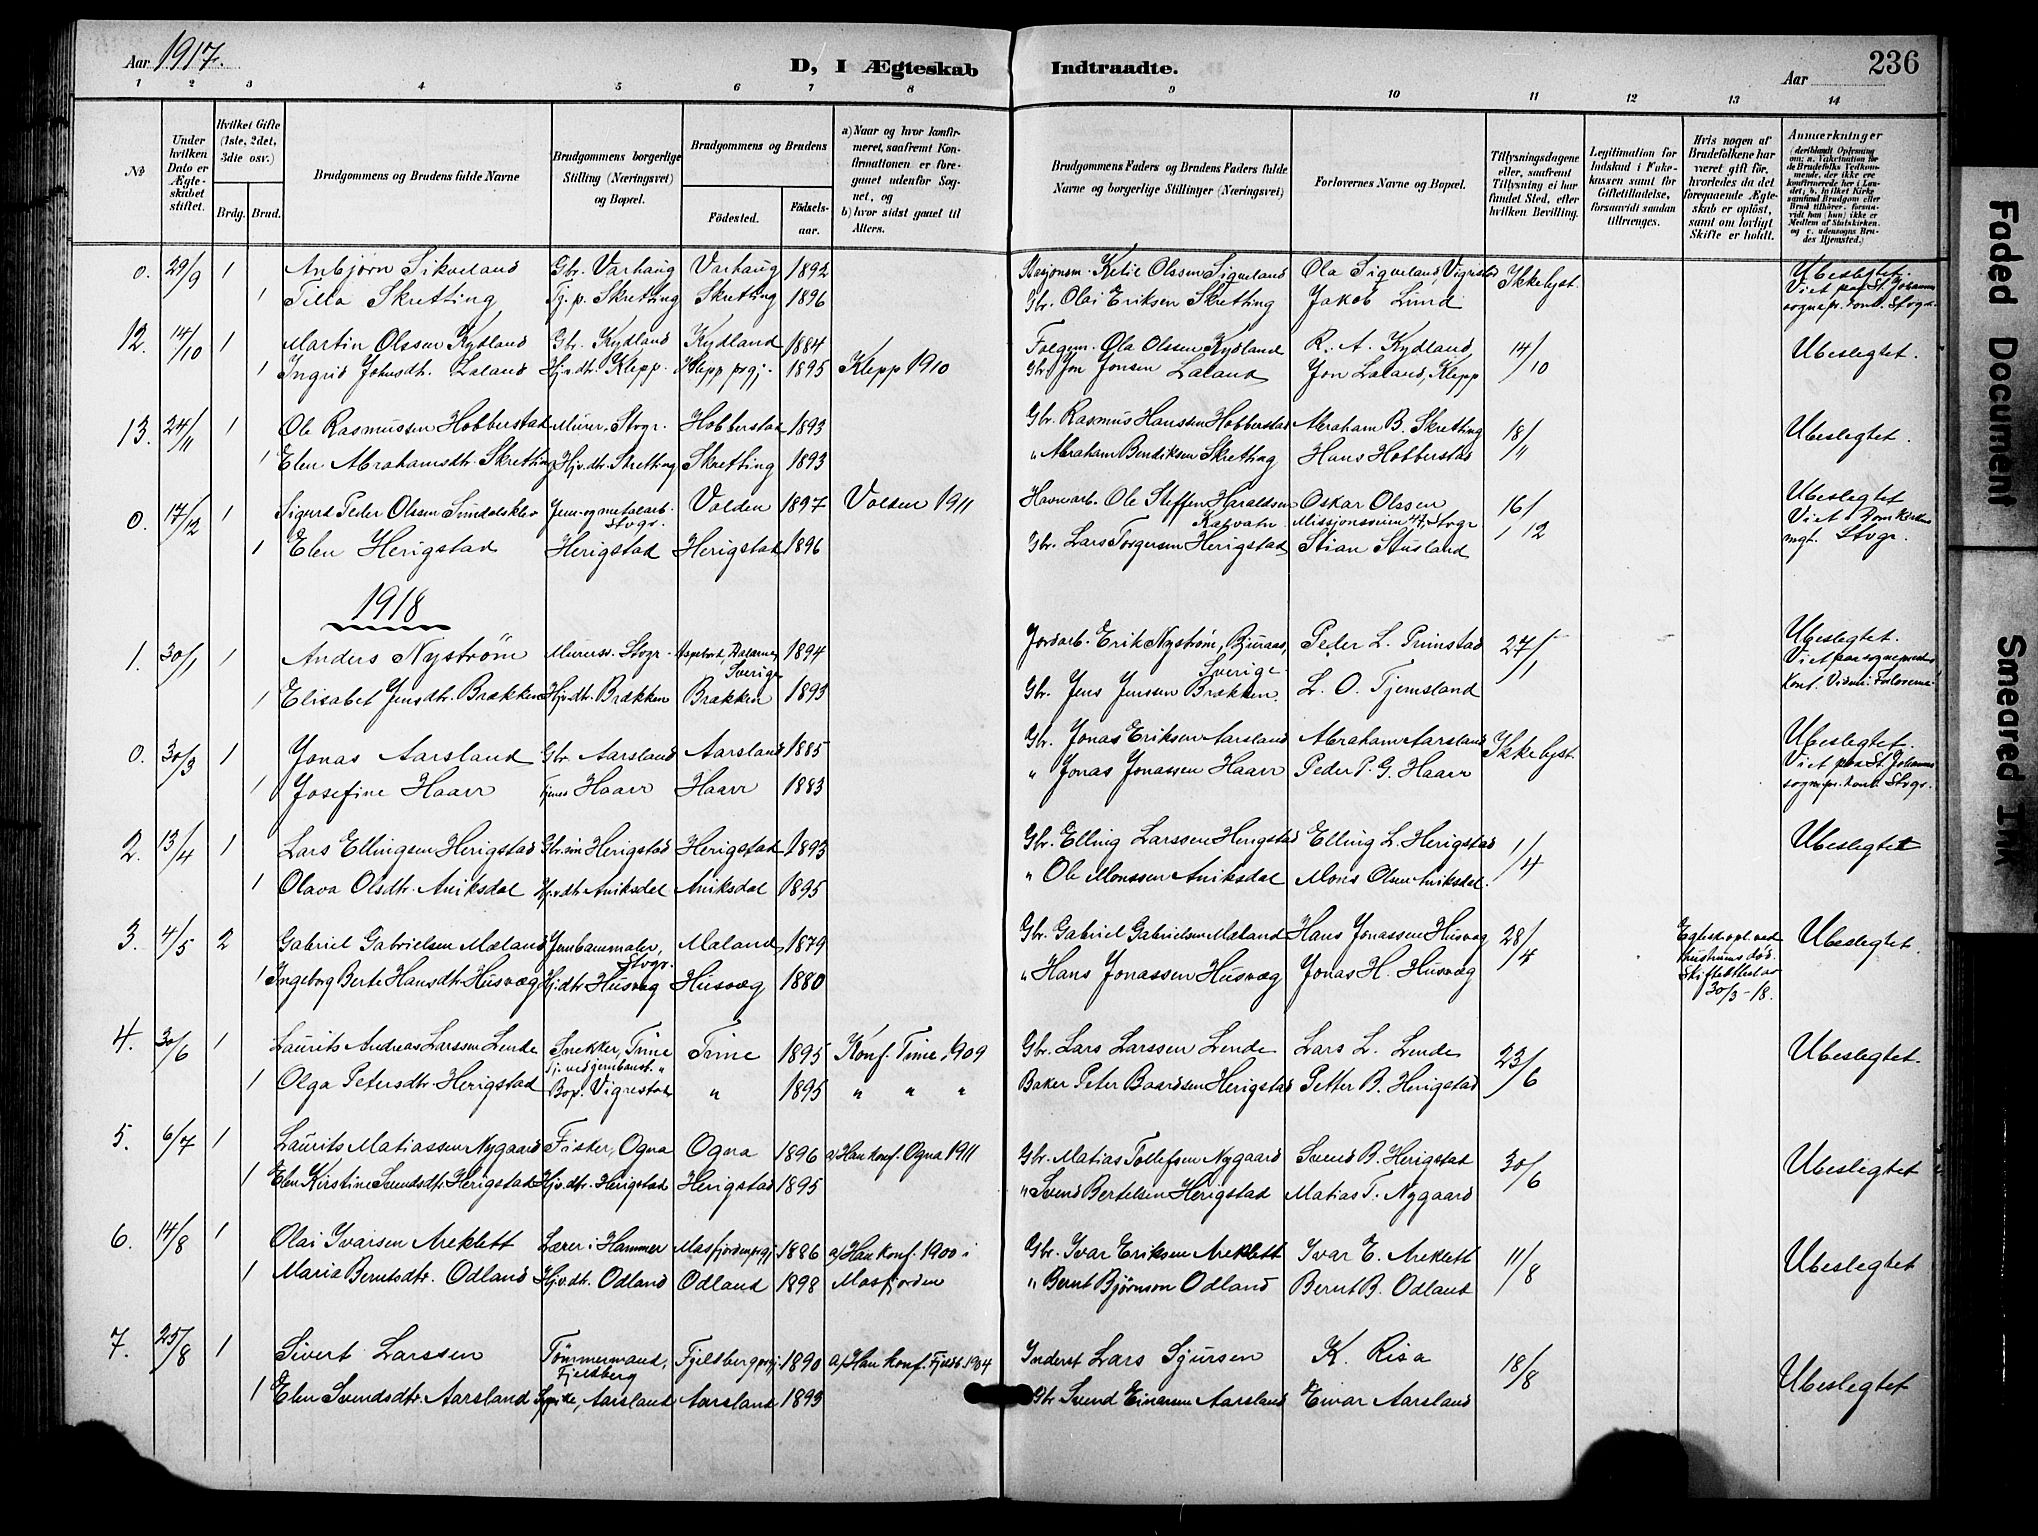 Aar 1917.
D, I Ægteskab Indtraadte.
Aar
236
1 2 3 4 5 6 7 8 9 10 11 12 13 14
No
Under hvilken Dato er Ægteskabet stiftet.
Hvilket Gifte (1ste, 2det, 3die osv.)
Brdg. Brud.
Brudgommens og Brudens fulde Navne
Brudgommens borgerlige Stilling (Næringsvei) og Bopæl.
Brudgommens og Brudens
Födested.
Födselsaar.
a) Naar og hvor konfirmeret, saafremt Konfirmationen er foregaaet udenfor Sognet, og
b) hvor sidst gaaet til Alters.
Brudgommens Faders og Brudens Faders fulde Navne og borgerlige Stillinger (Næringsvei)
Forlovernes Navne og Bopæl.
Tillysningsdagene eller, saafremt Tillysning ei har fundet Sted, efter hvilken Bevilling.
Legitimation for Indskud i Enkekassen samt for Giftetilladelse, forsaavidt saadan tiltrænges.
Hvis nogen af Brudefolkene har været gift før, hvorledes da det foregaaende Ægteskab er oplöst, samt om lovligt Skifte er holdt.
Anmærkninger (deriblandt Oplysning om: a. Vakcination for de Brudefolks Vedkommende, der ikke ere konfirmerede her i Landet; b. hvilket Kirkesamfund Brudgom eller Brud tilhører, forsaavidt han (hun) ikke er Medlem af Statskirken, og c. udensogns Brudes Hjemsted.)
0. 29/9 1 Anbjørn Sikveland Gbr. Varhaug Varhaug 1892 Stasjonsm. Ketil Olssen Sigveland Ola Sigveland, Vigrestad Ikke lyst. Ubeslegtet. Viet paa St. Johannes sognepr. kont. Stvgr.
1 Tilla Skretting Tj. p. Skretting Skretting 1896 Gbr. Olai Eriksen Skretting Jakob Lund
12. 14/10 1 Martin Olssen Kydland Gbr. Kydland Kydland 1884 Folgem. Ola Olssen Kydland R. A. Kydland 14/10 Ubeslegtet.
1 Ingrid Johnsdtr. Laland Hjvdtr. Klepp. Klepp prgj. 1895 Klepp 1910 Gbr. Jon Jonsen Laland Jon Laland, Klepp
13. 24/11 1 Ole Rasmussen Hobberstad Murer, Stvgr. Hobberstad 1893 Gbr. Rasmus Hanssen Hobberstad Abraham B. Skretting 18/11 Ubeslegtet.
1 Elen Abrahamsdtr. Skretting Hjvdtr. Skretting Skretting 1893 " Abraham Bendiksen Skretting Hans Hobberstad
0. 17/12 1 Sigurd Peder Olsen Jern-og metalarb. Stvgr. Volden 1897 Volden 1911 Havnearb. Ole Steffen Haraldsen Kalvatn Oskar Olssen Missjonsveien 47, Stvgr 16/12 Ubeslegtet Viet i Domkirkens mgt. Stvgr.
1 Elen Herigstad Herigstad Herigstad 1896 Gbr. Lars Torgersen Herigstad Stian Stusland
1918
1. 30/1 1 Anders Nystrøm Murersv. Stvgr. Dalarne, Sverige 1894 Jordarb. Erik Nystrøm, Bjuraas, Sverige Peder L. Prinstad 27/1 Ubeslegtet. Viet paa sogneprestens kont.
1 Elisabet Jensdtr. Brækken Hjvdtr. Brækken Brækken 1893 Gbr. Jens Jenssen Brækken. L. O. Tjemsland
0. 30/3 1 Jonas Aarsland Gbr. Aarsland Aarsland 1885 Gbr. Jonas Eriksen Aarsland Abraham Aarsland Ikke lyst. Ubeslegtet. Viet paa St. Johannes sognepr. kont. Stvgr.
1 Josefine Haarr Tjenes Haarr Haarr 1883 " Jonas Jonassen Haarr Peder P. G. Haarr
2. 13/4 1 Lars Ellingsen Herigstad Gbr. søn Herigstad Herigstad 1893 Gbr. Elling Larssen Herigstad Elling L. Herigstad 1/4 Ubeslegtet
1 Olava Olsdtr. Aniksdal Hjvdtr Aniksdal Aniksdal 1895 " Ole Monssen Aniksdal Mons Olsen Aniksdal.
3. 4/5 2 Gabriel Gabrielsen Mæland Jernbanmaler, Stvgr. Mæland 1879 Gbr. Gabriel Gabrielsen Mæland Hans Jonassen Husvæg 28/4 Egtesk. opl. ved hustruens død. Skifteattest av 30/3-18. Ubeslegtet.
1 Ingeborg Berte Hansdtr Husvæg Hjvdtr Husvæg Husvæg 1880 " Hans Jonassen Husvæg Jonas H. Husvæg
4. 30/6 1 Laurits Andreas Larssen Lende Snekker, Time Time 1895 Konf. Time, 1909 Gbr. Lars Larssen Lende Lars L. Lende 23/6 Ubeslegtet.
1 Olga Petersdtr. Herigstad Tj. ved jernbanest. " Bop. Vigrestad " 1895 " " " Baker Peter Baardsen Herigstad Petter B. Herigstad
5. 6/7 1 Laurits Matiassen Nygaard Fisker, Ogna Ogna 1896 a) Han konf. Ogna 1911 Gbr. Matias Tollefsen Nygaard Svend B. Herigstad 30/6 Ubeslegtet
1 Elen Kirstine Svendsdtr. Herigstad Hjvdtr. Herigstad Herigstad 1895 " Svend Bertelsen Herigstad Matias T. Nygaard
6. 14/8 1 Olai Ivarsen Areklett Lærer i Hammer Masfjorden pgj 1886 a) Han konf. 1900 i Gbr. Ivar Eriksen Areklett Ivar E. Areklett 11/8 Ubeslegtet
1 Maria Berntsdtr. Odland Hjvdtr. Odland Odland 1898 Masfjorden " Bernt Bjørnson Odland Bernt B. Odland
7. 25/8 1 Sivert Larssen Tømmermand, Fjelsberg Fjelsberg prgj. 1890 a) Han konf. Fjeldb. 1904 Inderst Lars Sjursen K. Risa 18/8 Ubeslegtet
1 Elen Svendsdtr. Aarsland Aarsland Aarsland 1893 Gbr Svend Einarsen Aarsland Eivar Aarsland
Faded Document
Smeared Ink